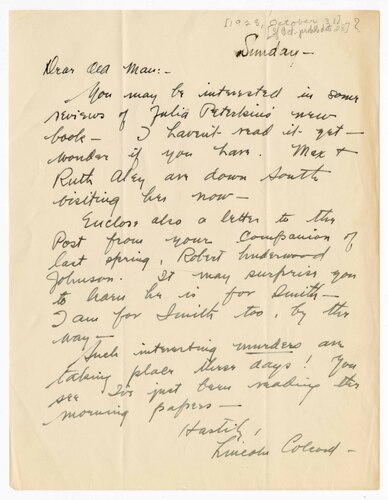 [1928, October 31]
Sunday —
Dear Old Man:—
You may be interested in some
reviews of Julia Peterkin's new
book — I haven't read it yet —
wonder if you have. Max +
Ruth Aley are down South
visiting her now —
Enclose also a letter to the
Post from your Companion of
last spring, Robert Underwood
Johnson. It may surprise you
to learn he is for Smith —
I am for Smith too, by the
way —
Such interesting murders are
taking place these days! You
see I've just been reading the
morning papers —
Hastily,
Lincoln Colcord —